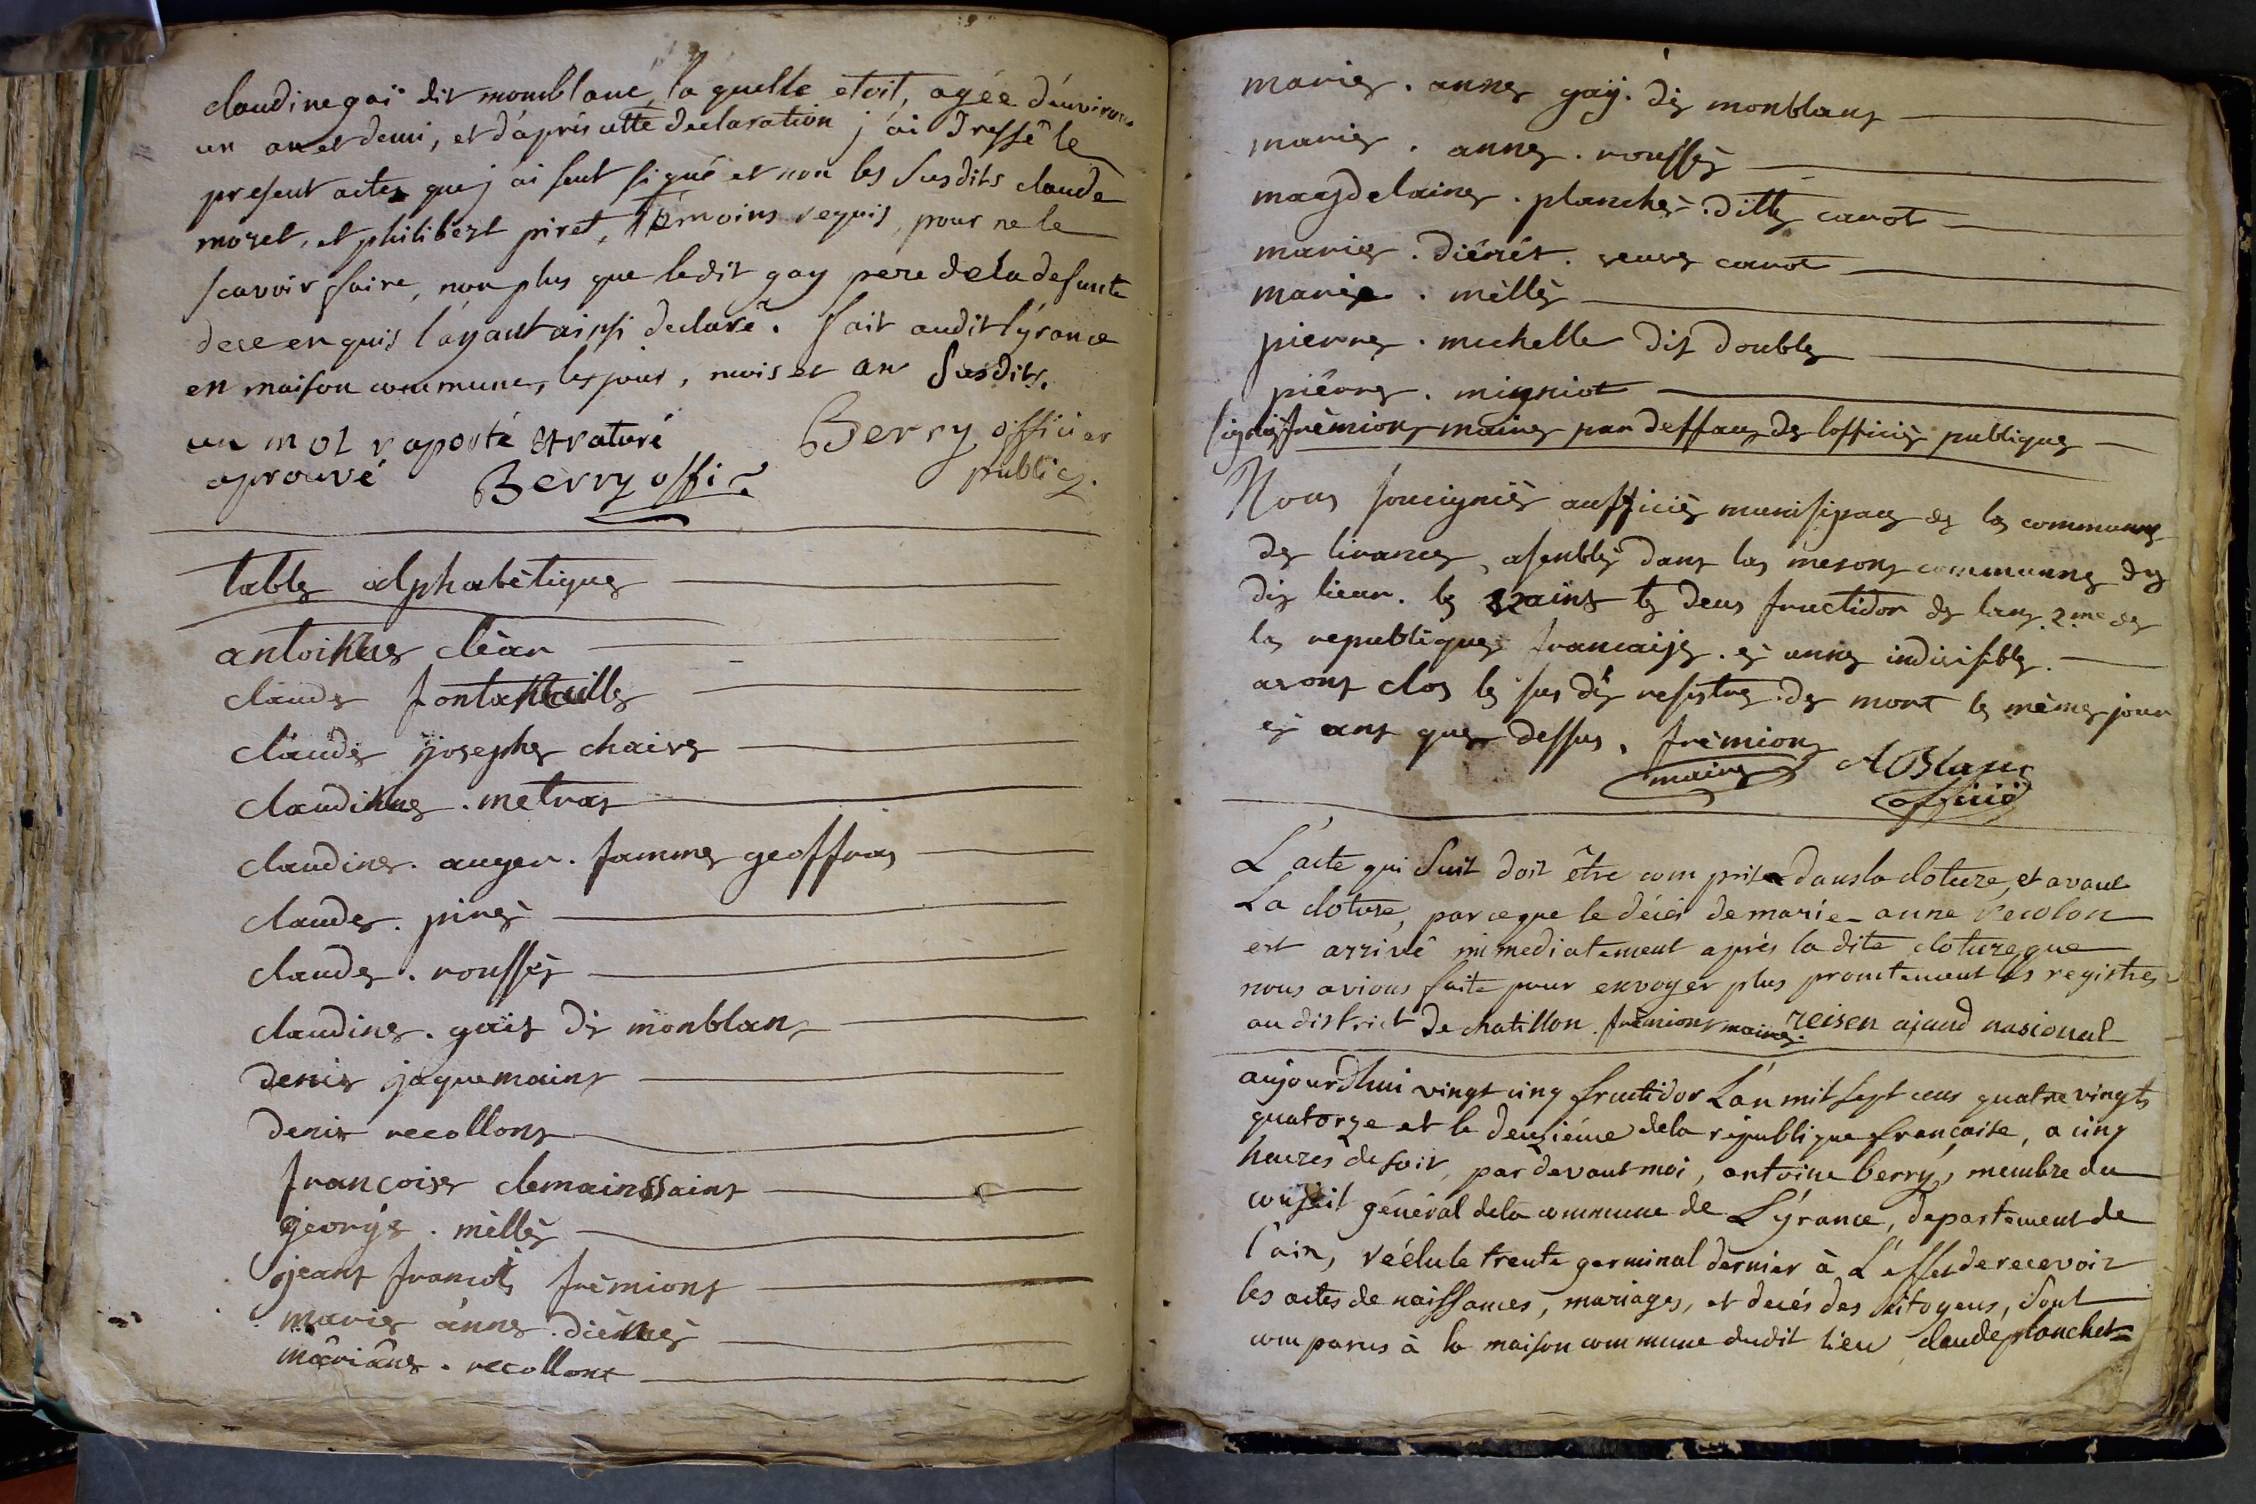 claudine gaï dit momblanc, la quelle etoit, agée d'environ
un an et demi, et d'aprés cette declaration j'ai dressé le
present acte que j'ai seul signé et non les susdits claude
morel, et philibert piret, témoins requis, pour ne le
scavoir faire, non plus que ledit gay pére de la defunte
de ce enquis l'ayant ainsi declaré. fait audit lýrance
en maison commune, les jour, mois et an susdits.
un mot raporté et raturé
aprouvé Berry offi
Berry officier
public.
table alphabètique
antoinne clèar
claude fontanaille
claude josephe chaive
claudinne . metras
claudine . auger . famme geoffray
claude . pirès
claude . roussès
claudine . gais di monblan
denis jaquemaint
denis recollont
francoise clemainssaint
george . millès
jeant francois frèmiont
marie anne . diennès
mâriâne . recollont
marie . anne gaÿ . di monblant
marie . anne . roussès
magdelaine . planchès . ditte carrot
marie . diénés . veuve carrot
marie . millès
pierre . michelle dis double
piérre . migniot
signiès frèmiont maire par deffaut de lofficiè publique
Nous souigniès aufficiès munisipaus de la commune
de lirance, asenblès dans la meson commune du
dis lieur . le vaint te deus fructidor de lant 2me de
la republique francaise . et unne indivisible .
avont clos le sus dis resistre de mort le mème jour
et ant que dessus . frèmiont
maire A Blanc
officiè
L'acte qui suit doit être comprise dans la cloture, et avant
La cloture, parce que le décés de marie-anne recolon
est arrivé immediatement après la dite cloture que
nous avions faite pour envoyer plus promtement les registres
au district de chatillon . frèmiont maire . reisen ajand nasional
aujourd'hui vingt cinq fructidor L'an mil sept cens quatre vingts
quatorze et le deuziéme de la république française, a cinq
heures de soir, par devant moi, antoine berry, membre du
conseil général de la commune de Lýrance, departement de
l'ain, réélu le trente germinal dernier à L'effet de recevoir
les actes de naissances, mariages, et decés des citoyens, sont
comparus à la maison commune dudit lieu claude planchet